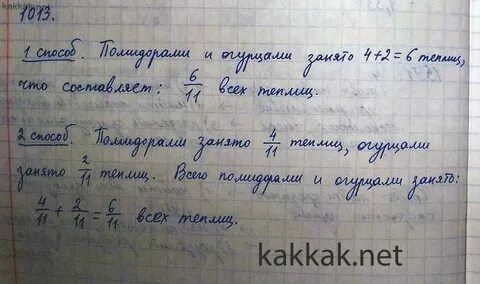 kakkak.net
1013.
1 способ. Помидорами и огурцами занято 4+2=6 теплиц,
что составляет: 6/11 всех теплиц.
2 способ. Помидорами занято 4/11 теплиц, огурцами
занято 2/11 теплиц. Всего помидорами и огурцами занято:
4/11 + 2/11 = 6/11 всех теплиц.
kakkak.net